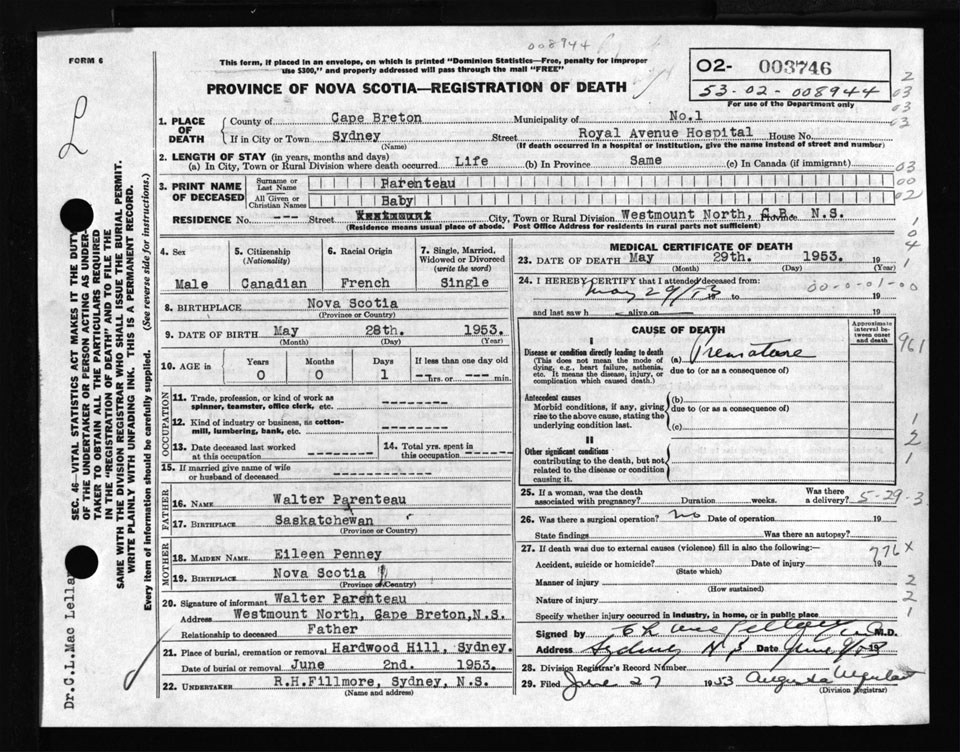 008944
FORM 6
This form, if placed in an envelope, on which is printed "Dominion Statistics—Free, penalty for improper
use $300," and properly addressed will pass through the mail "FREE"
PROVINCE OF NOVA SCOTIA—REGISTRATION OF DEATH
02- 003746
53-02-008944
For use of the Department only
L
1. PLACE OF DEATH
County of Cape Breton Municipality of No.1
If in City or Town Sydney Street Royal Avenue Hospital House No.
(Name) (If death occurred in a hospital or institution, give the name instead of street and number)
2. LENGTH OF STAY (in years, months and days)
(a) In City, Town or Rural Division where death occurred Life (b) In Province Same (c) In Canada (if immigrant)
3. PRINT NAME OF DECEASED
Surname or Last Name Parenteau
All Given or Christian Names Baby
RESIDENCE No. --- Street Westmount City, Town or Rural Division Westmount North, C.B. Province N.S.
(Residence means usual place of abode. Post Office Address for residents in rural parts not sufficient)
4. Sex
Male
5. Citizenship
(Nationality)
Canadian
6. Racial Origin
French
7. Single, Married,
Widowed or Divorced
(write the word)
Single
8. BIRTHPLACE Nova Scotia
(Province or Country)
9. DATE OF BIRTH May 28th. 1953.
(Month) (Day) (Year)
10. AGE in
Years Months Days If less than one day old
0 0 1 --hrs. or --- min.
OCCUPATION
11. Trade, profession, or kind of work as
spinner, teamster, office clerk, etc. --------
12. Kind of industry or business, as cotton-
mill, lumbering, bank, etc. --------
13. Date deceased last worked
at this occupation --------
14. Total yrs. spent in
this occupation. -------
15. If married give name of wife
or husband of deceased -----------
FATHER
16. NAME Walter Parenteau
17. BIRTHPLACE Saskatchewan
(Province or Country)
MOTHER
18. MAIDEN NAME. Eileen Penney
19. BIRTHPLACE Nova Scotia
(Province or Country)
20. Signature of informant Walter Parenteau
Address Westmount North, Cape Breton,N.S.
Relationship to deceased Father
21. Place of burial, cremation or removal Hardwood Hill, Sydney.
Date of burial or removal June 2nd. 1953.
22. UNDERTAKER R.H.Fillmore, Sydney, N.S.
(Name and address)
MEDICAL CERTIFICATE OF DEATH
23. DATE OF DEATH May 29th. 1953. 19
(Month) (Day) (Year)
24. I HEREBY CERTIFY that I attended deceased from:
May 29/53 19 to 19
00-0-01-00
and last saw h alive on 19
CAUSE OF DEATH
Approximate
interval be-
tween onset
and death
I
Disease or condition directly leading to death
(This does not mean the mode of
dying, e.g., heart failure, asthenia,
etc. It means the disease, injury, or
complication which caused death.)
(a) Premature
due to (or as a consequence of)
Antecedent causes
Morbid conditions, if any, giving
rise to the above cause, stating the
underlying condition last.
(b)
due to (or as a consequence of)
(c)
II
Other significant conditions
contributing to the death, but not
related to the disease or condition
causing it.
25. If a woman, was the death
associated with pregnancy? Duration weeks. Was there
a delivery? 5-29-3
26. Was there a surgical operation? no Date of operation 19
State findings Was there an autopsy?
27. If death was due to external causes (violence) fill in also the following:— 776 X
Accident, suicide or homicide? Date of injury 19
(State which)
Manner of injury
(How sustained)
Nature of injury
Specify whether injury occurred in industry, in home, or in public place
Signed by M.D.
Address Sydney N S Date 19
28. Division Registrar's Record Number
29. Filed June 27 1953 Augusta
(Division Registrar)
2
03
03
03
03
00
02
1
0
4
1
961
1
2
1
2
2
1
SEC. 46—VITAL STATISTICS ACT MAKES IT THE DUTY
OF THE UNDERTAKER OR PERSON ACTING AS UNDER-
TAKER TO OBTAIN ALL THE PARTICULARS REQUIRED
IN THE "REGISTRATION OF DEATH" AND TO FILE THE
SAME WITH THE DIVISION REGISTRAR WHO SHALL ISSUE THE BURIAL PERMIT.
WRITE PLAINLY WITH UNFADING INK. THIS IS A PERMANENT RECORD.
Every item of information should be carefully supplied. (See reverse side for instructions.)
Dr.C.L.Mac Lellan